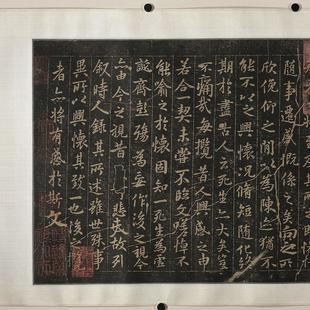 隨事遷感慨係之矣向之所
欣俛仰之間以為陳迹猶不
能不以之興懷況脩短隨化終
期於盡古人云死生亦大矣豈
不痛哉每攬昔人興感之由
若合一契未嘗不臨文嗟悼不
能喻之於懷固知一死生為虛
誕齊彭殤為妄作後之視今
亦由今之視昔悲夫故列
敘時人錄其所述雖世殊事
異所以興懷其致一也後之攬
者亦將有感於斯文